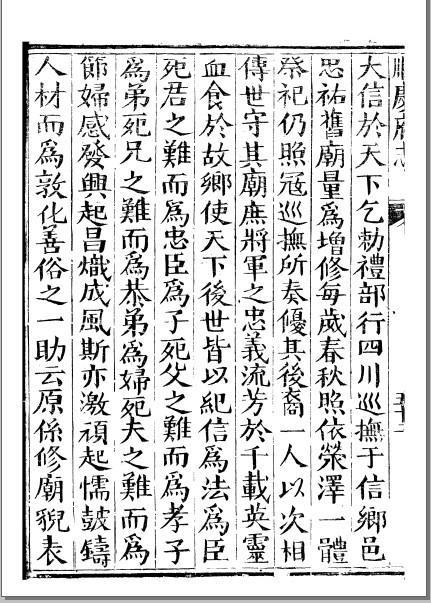 順慶府志
大信於天下乞勅禮部行四川巡撫于信鄉邑
忠祐舊廟量爲增修每歲春秋照依滎澤一體
祭祀仍照冠巡撫所奏優其後裔一人以次相
傳世守其廟庶將軍之忠義流芳於千載英靈
血食於故鄉使天下後世皆以紀信爲法爲臣
死君之難而爲忠臣爲子死父之難而爲孝子
爲弟死兄之難而爲恭弟爲婦死夫之難而爲
節婦感發興起昌熾成風斯亦激頑起懦鼓鑄
人材而爲敦化善俗之一助云原係修廟貌表